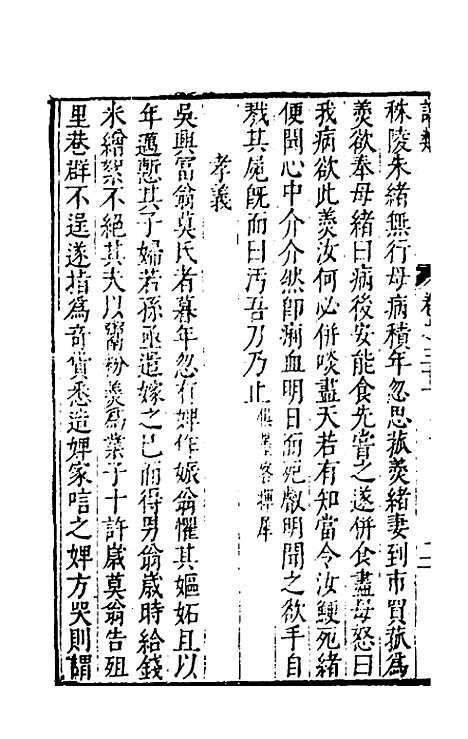 秣陵朱緒無行母病積年忽思菰羹緒妻到市買菰爲
羹欲奉母緒曰病後安能食先嘗之遂併食盡母怒曰
我病欲此羹汝何必併啖盡天若有知當令汝鯁死緒
便聞心中介介然卽痢血明日而死𢾾明聞之欲手自
戮其屍旣而曰汚吾刀乃止
孝義
吳興富翁莫氏者暮年忽有婢作娠翁懼其嫗妬且以
年邁慙其子婦若孫亟遣嫁之已而得男翁歲時給錢
米繒絮不絕其夫以鬻粉羹爲業子十許歲莫翁告殂
里巷群不逞遂指爲奇貨悉造婢家唁之婢方哭則謂